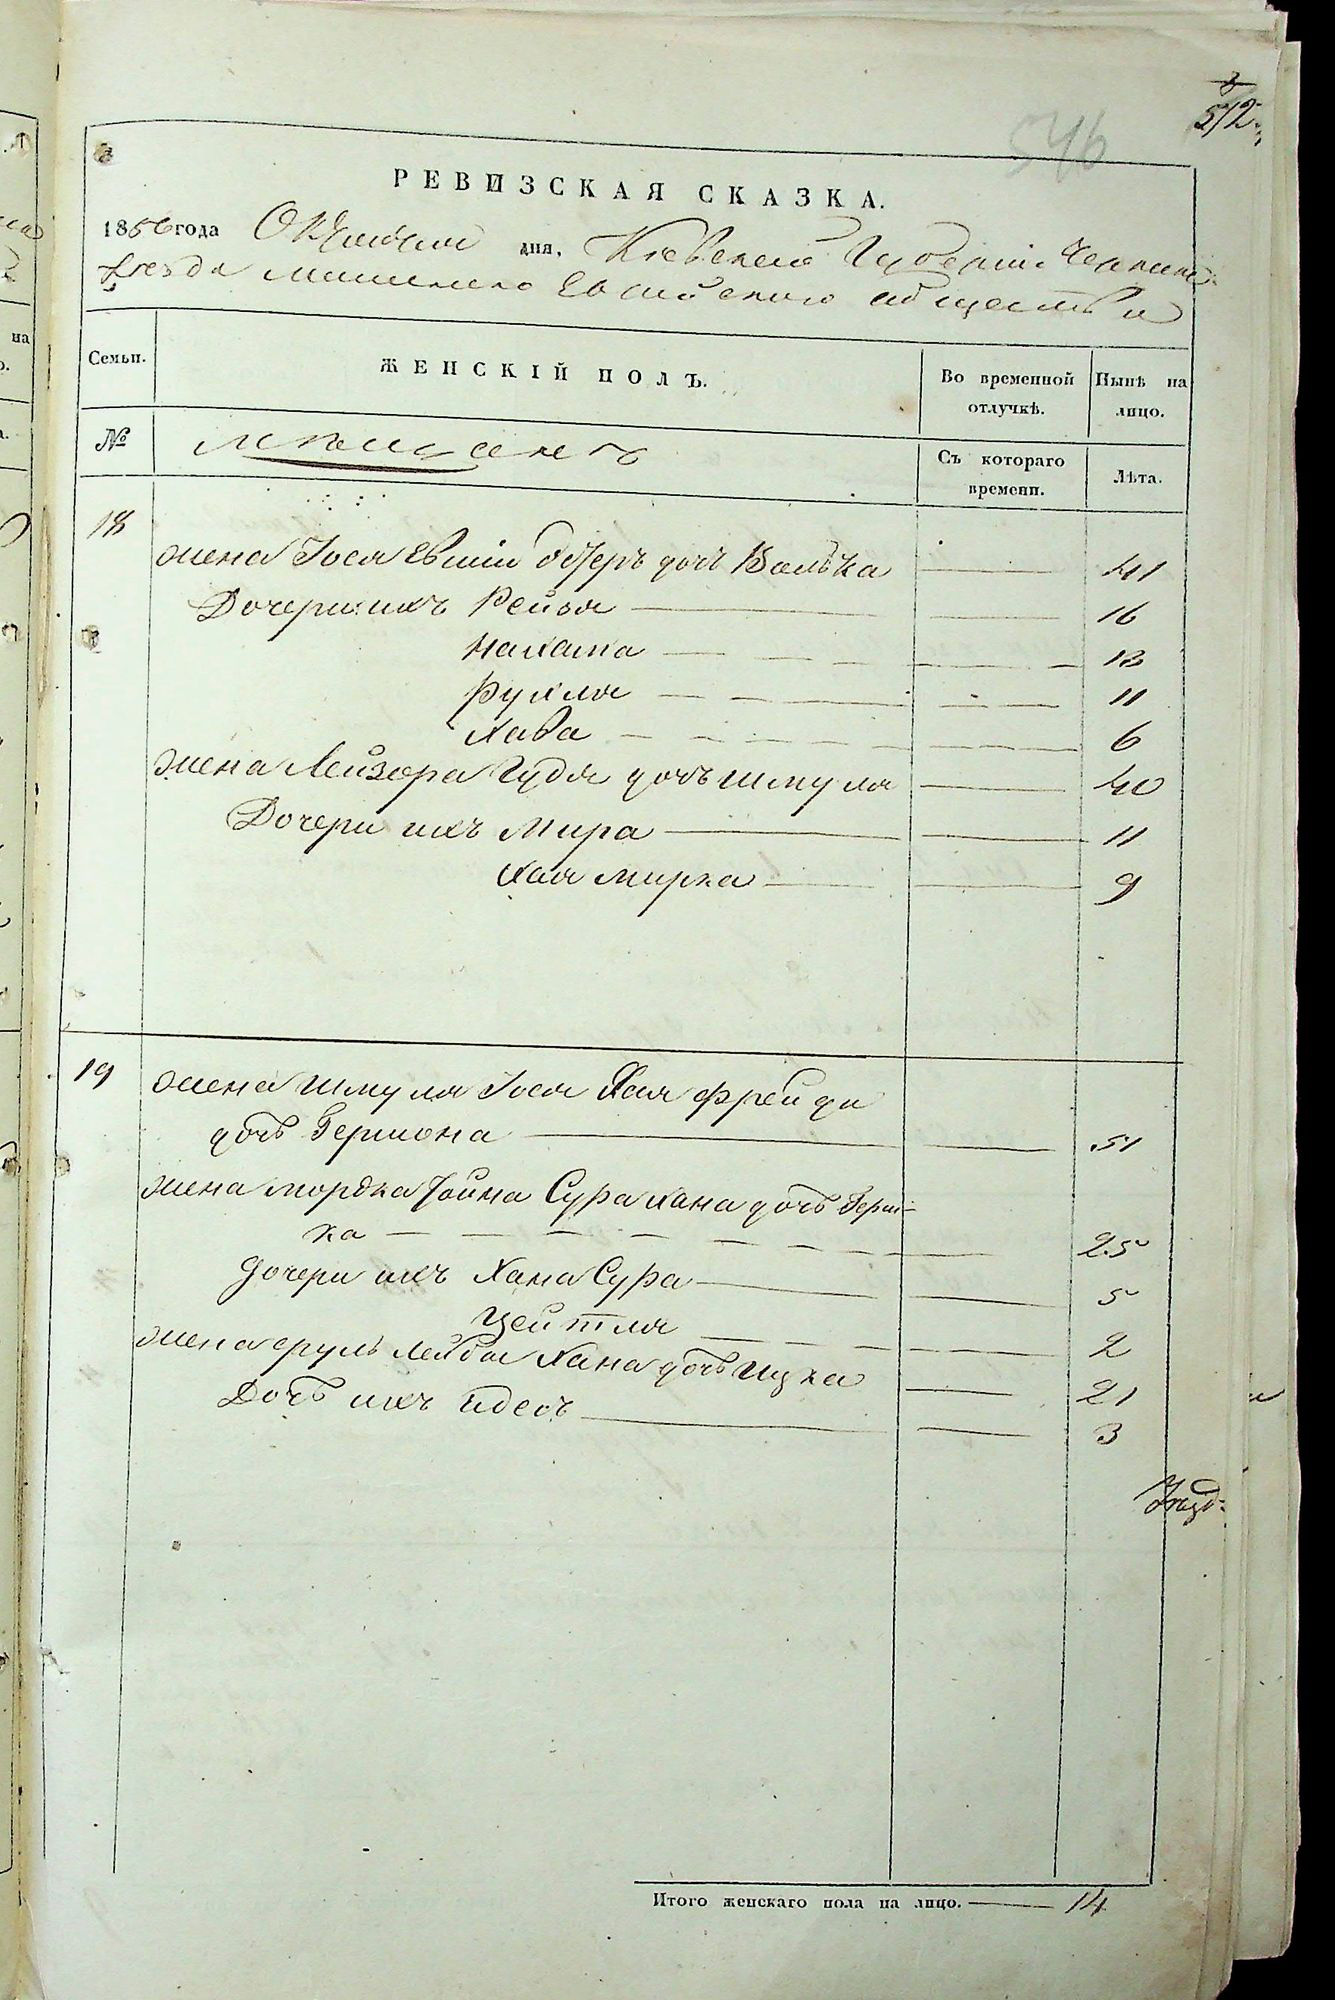 512
546
РЕВИЗСКАЯ СКАЗКА.
1856 года дня, Кіевской Губерніи Черкаск:
уезда Еврейского общества
Семьи.
ЖЕНСКІЙ ПОЛЪ.
Во временной отлучкѣ.
Нынѣ на лицо.
№
мещанъ
Съ котораго времени.
Лѣта.
18
жена Іося дочъ Волька 41
Дочери ихъ Рейзя 16
Нахама 13
Рухля 11
Хава 6
жена Лейзора Гудя дочъ Шмуля 40
Дочери ихъ Мира 11
Хая Мирка 9
19
жена Шмуля Іося Хая Фрейда
дочъ Гершона 51
жена Мордка Хаина Сура Хана дочъ Герш-
ка 25
Дочери ихъ Хана Сура 5
Цейтля 2
жена Сруль Лейба Хана дочъ Ицка 21
Дочъ ихъ Идесъ 3
Итого женскаго пола на лицо. 14